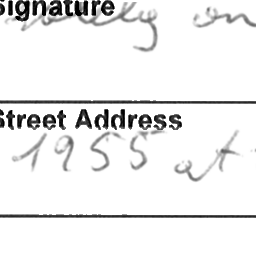 Signature
on
Street Address
1955 at